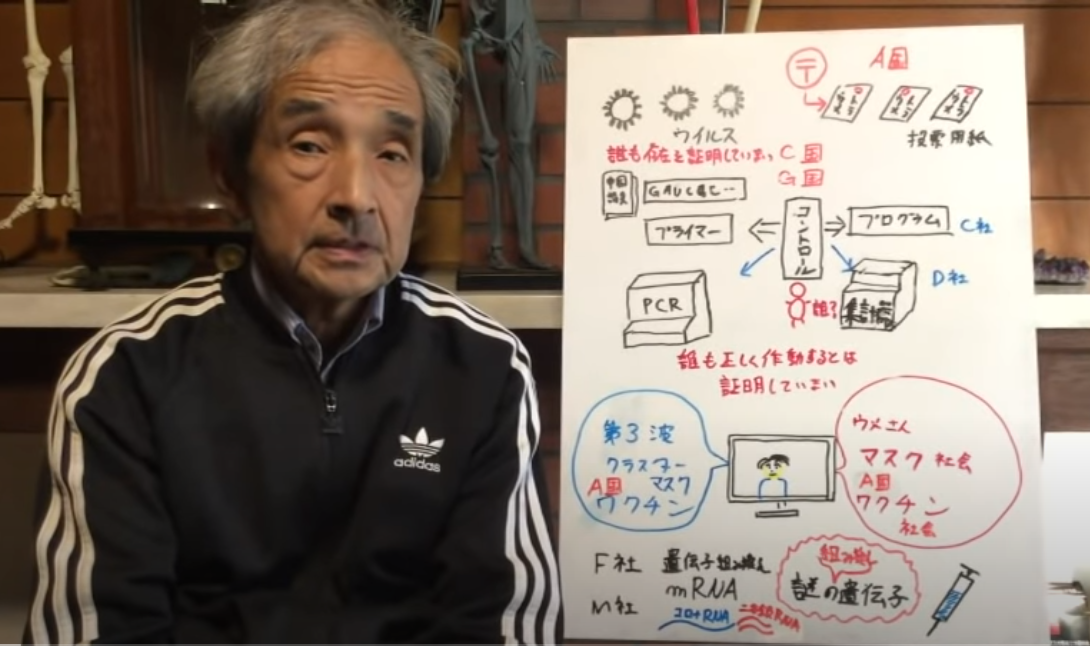 adidas
〒
A国
ウイルス
投票用紙
誰も存在を証明していない C国
G国
プライマー
コントロール
プログラム
C社
D社
PCR
誰?
集計器
誰も正しく作動するとは
証明していない
第3波
クラスター
A国 マスク
ワクチン
マスク社会
A国
ワクチン
社会
F社 遺伝子組み換え
mRNA
組み換え
謎の遺伝子
M社
コロナRNA
RNA